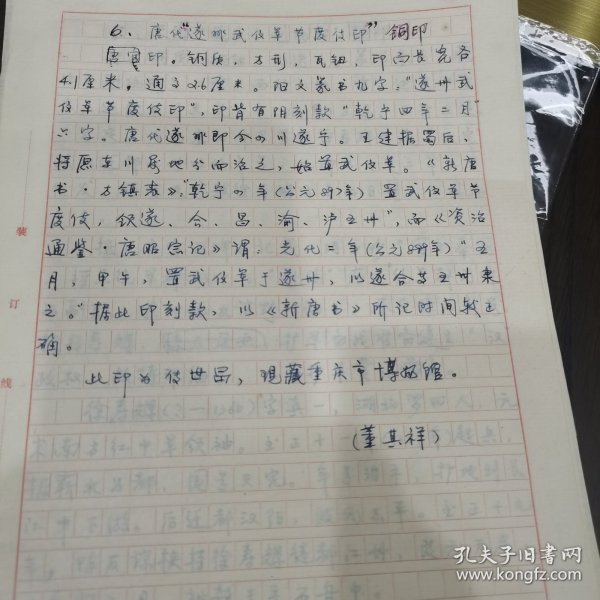 6、唐代“遂州武信军节度使印”铜印
唐官印。铜质,方形,瓦钮,印面长宽各
4.1厘米。通高2.6厘米。阳文篆书九字:“遂州武
信军节度使印”,印背有阴刻款“乾宁四年二月”
六字。唐代遂州即今四川遂宁。王建据蜀后,
将原东川属地分而治之,始置武信军。《新唐
书·方镇表》:“乾宁四年(公元897年)置武信军节
度使,领遂、合、昌、渝、泸五州”,而《资治
通鉴·唐昭宗记》谓:光化二年(公元899年)“五
月,甲午,置武信军于遂州,以遂合等五州隶
之。”据此印刻款,以《新唐书》所记时间较正
确。
此印为传世品,现藏重庆市博物馆。
(董其祥)
装
订
线
孔夫子旧书网
www.kongfz.com